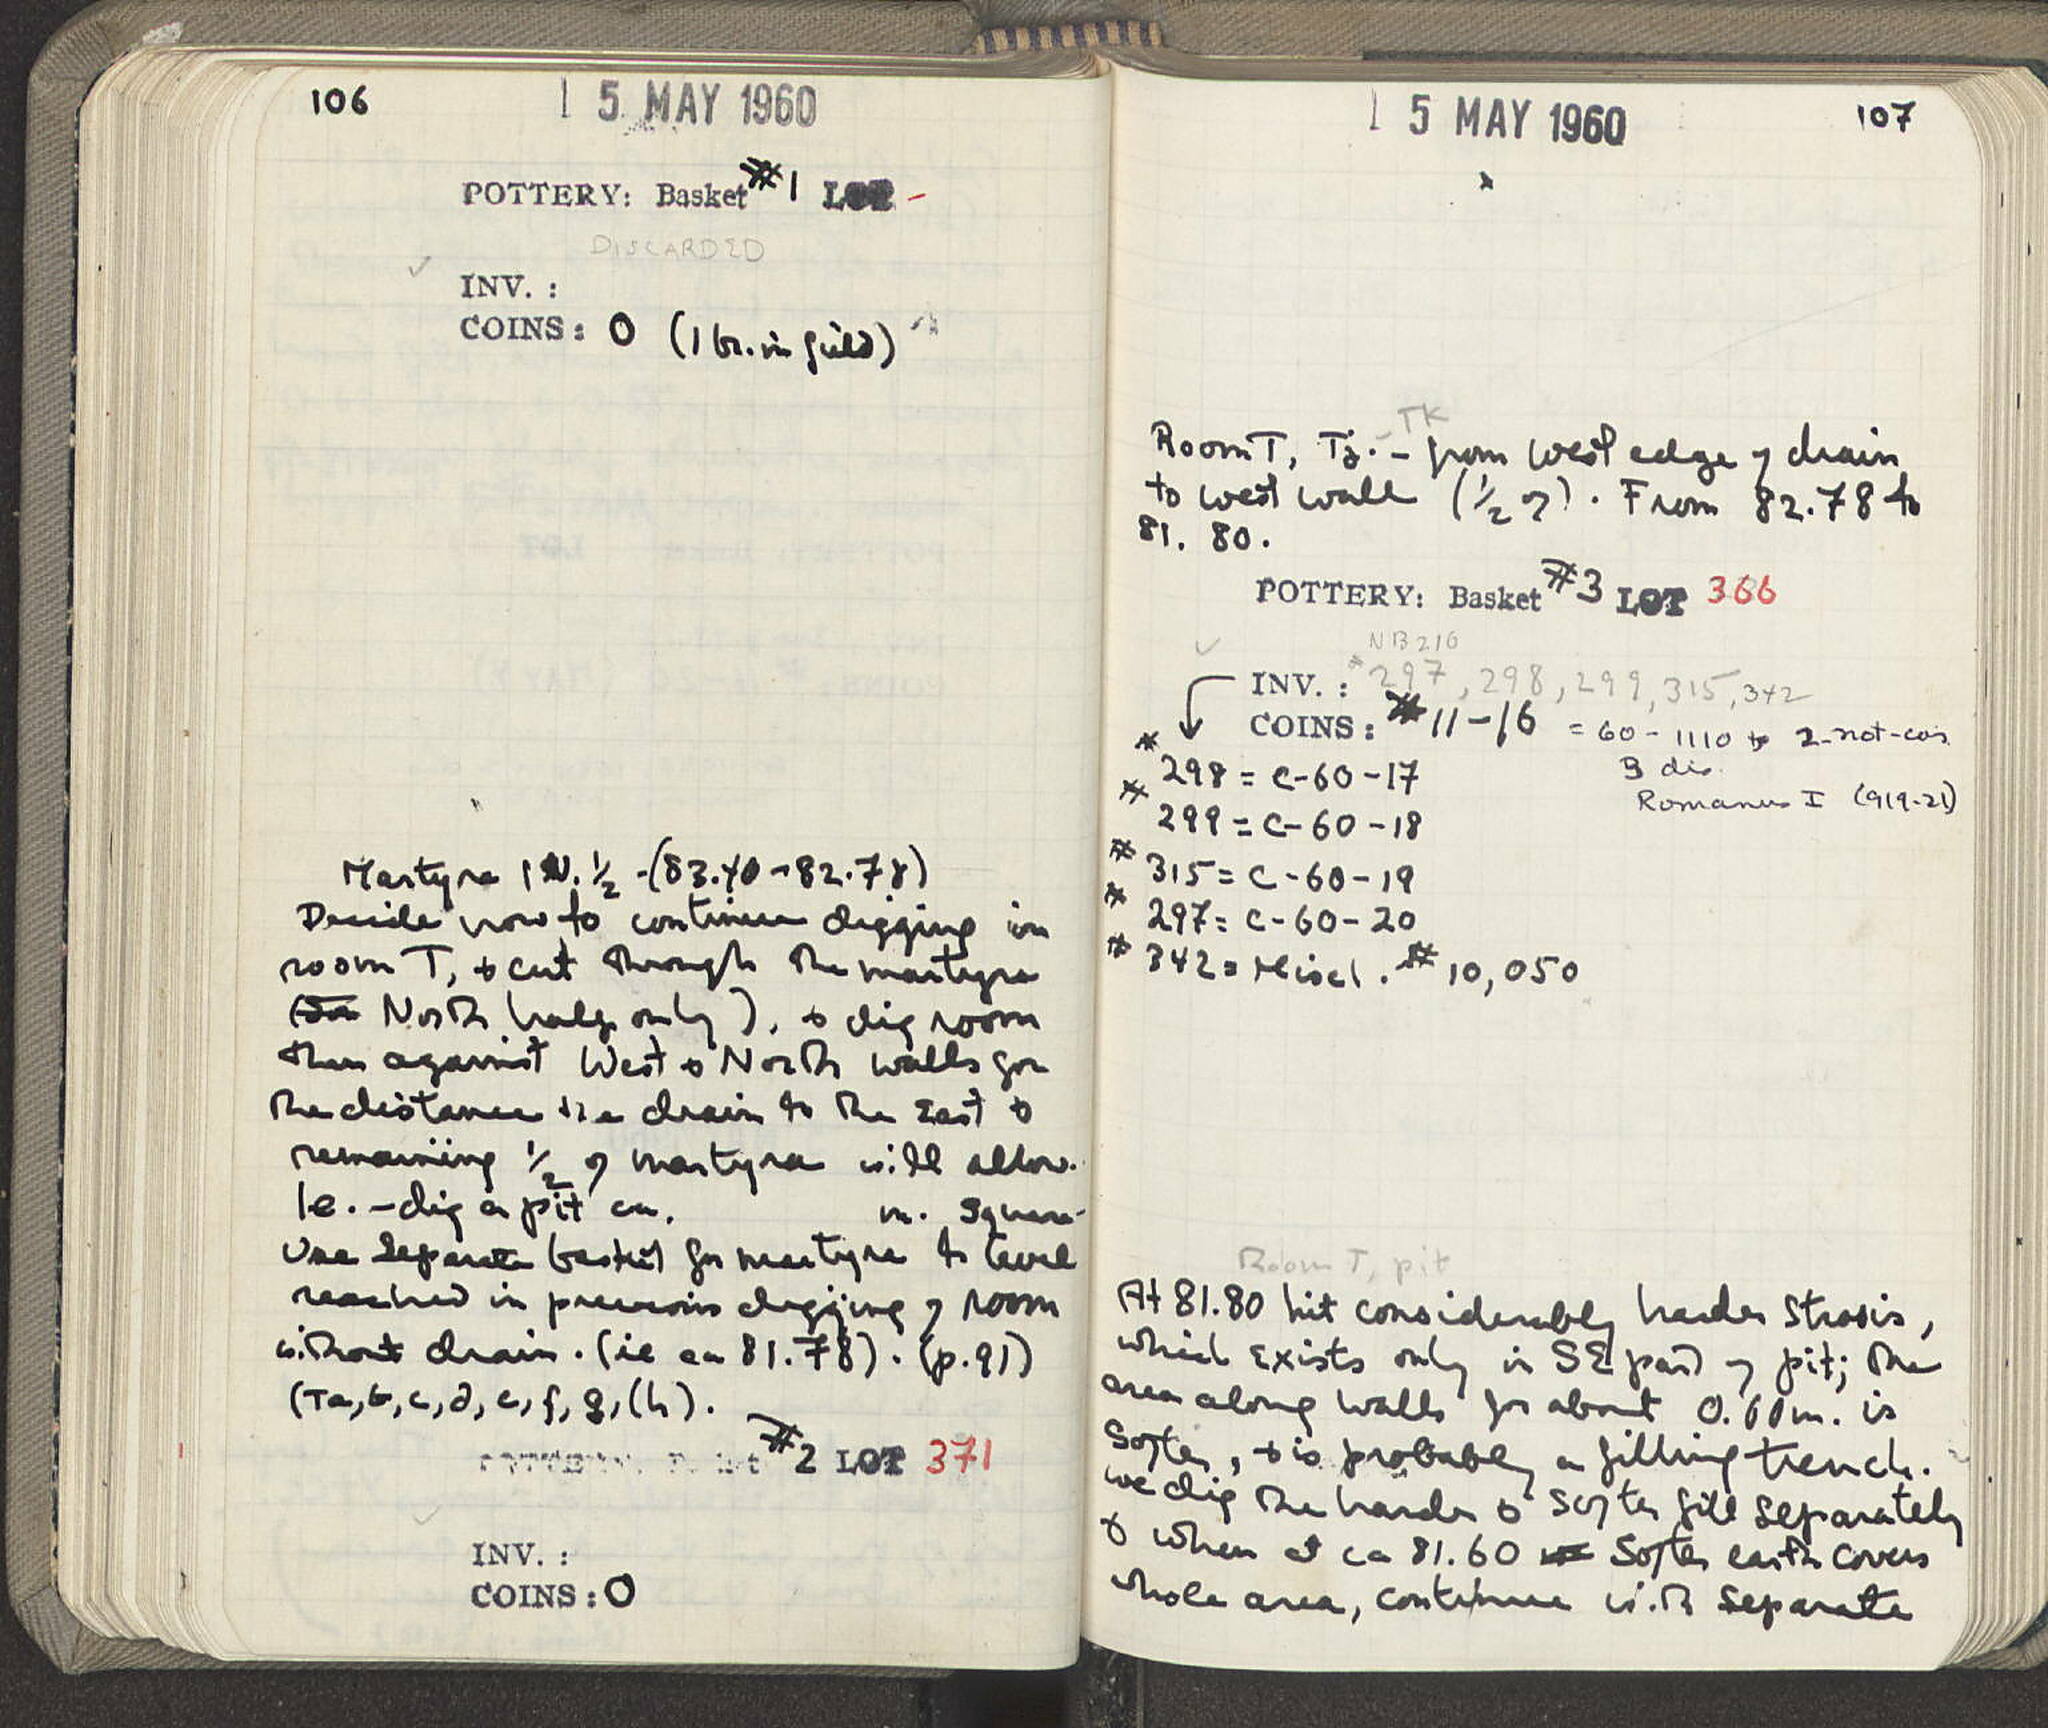 106
1 5 MAY 1960
POTTERY: Basket #1 LOT -
DISCARDED
INV. :
COINS: 0 (1 br. in field)
Martyra 1 N. 1/2 - (83.40 - 82.78)
Decide now to continue digging in
room T, & cut through the martyra
North half only), & dig room
then against West & North walls for
the distance the drain to the East &
remaining 1/2 of martyra will allow.
Ie. - dig a pit ca. m. square.
Use separate basket for martyra to level
reached in previous digging of room
without drain. (ie ca 81.78). (p.91)
(Ta, b, c, d, e, f, g, (h).
POTTERY: Basket #2 LOT 371
INV. :
COINS: 0
1 5 MAY 1960
107
TK
Room T, Tj. - from west edge of drain
to west wall (1/2 of). From 82.78 to
81.80.
POTTERY: Basket #3 LOT 366
NB 210
INV. : *297, 298, 299, 315, 342
COINS: #11-16 = 60-1110 & 2-not-coins
3 dis.
Romanus I (919-21)
# 298 = C-60-17
# 299 = C-60-18
# 315 = C-60-19
# 297 = C-60-20
# 342 = Miscl. # 10,050
Room T, pit
At 81.80 hit considerably harder strosis,
which exists only in SE part of pit; the
area along walls for about 0.60m. is
softer, & is probably a filling trench.
We dig the harder & softer fill separately
& when at ca 81.60 softer earth covers
whole area, continue with separate